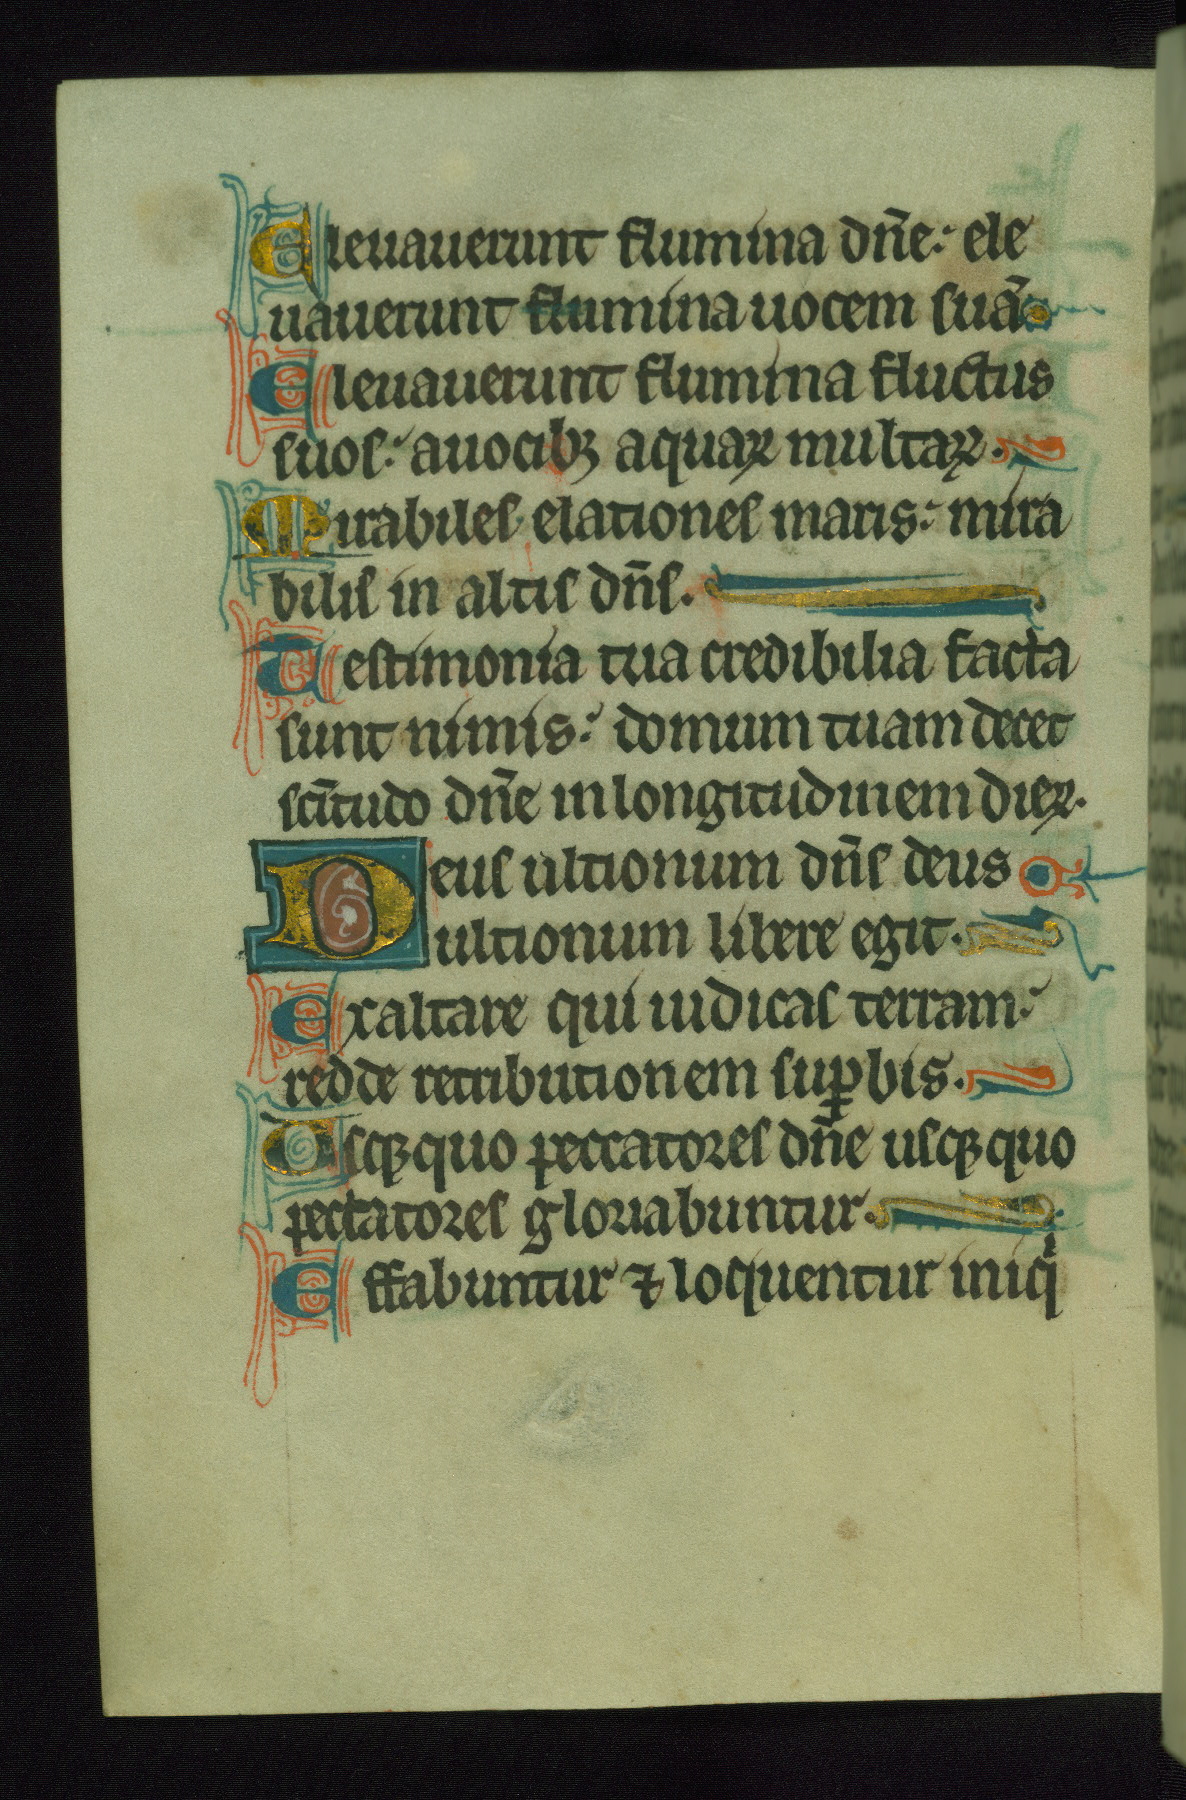 Eleuauerunt flumina dn̄e: ele
uauerunt flumina uocem suā
Eleuauerunt flumina fluctus
suos: auocibꝫ aquaꝝ multaꝝ.
Mirabiles elationes maris: mira
bilis in altis dn̄s.
Testimonia tua credibilia facta
sunt nimis: domum tuam decet
sc̄itudo dn̄e in longitudinem dieꝝ.
Deus ultionum dn̄s deus
ultionum libere egit.
Exaltare qui iudicas terram:
redde retributionem suꝑbis.
Usqꝫquo peccatores dn̄e usqꝫ quo
peccatores gloriabuntur.
Effabuntur ⁊ loquentur iniqͥ